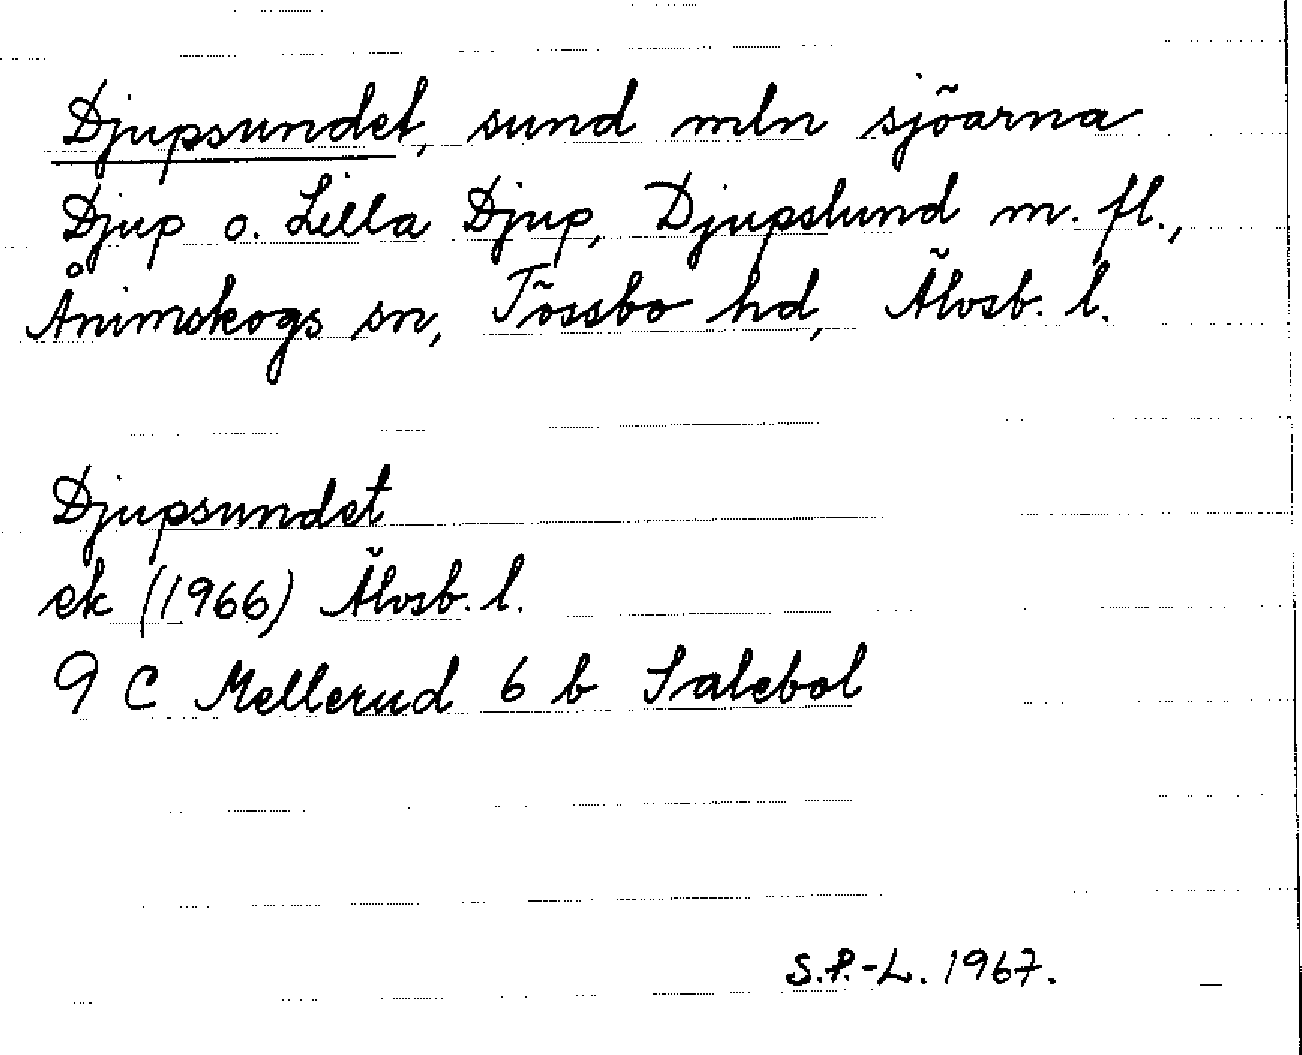 Djupsundet, sund mln sjöarna
Djup o. Lilla Djup, Djupslund m. fl.,
Ånimskogs sn, Tössbo hd, Älvsb. l.
Djupsundet
ek (1966) Älvsb. l.
9 C Mellerud 6 b Salebol
S.P.-L. 1967.